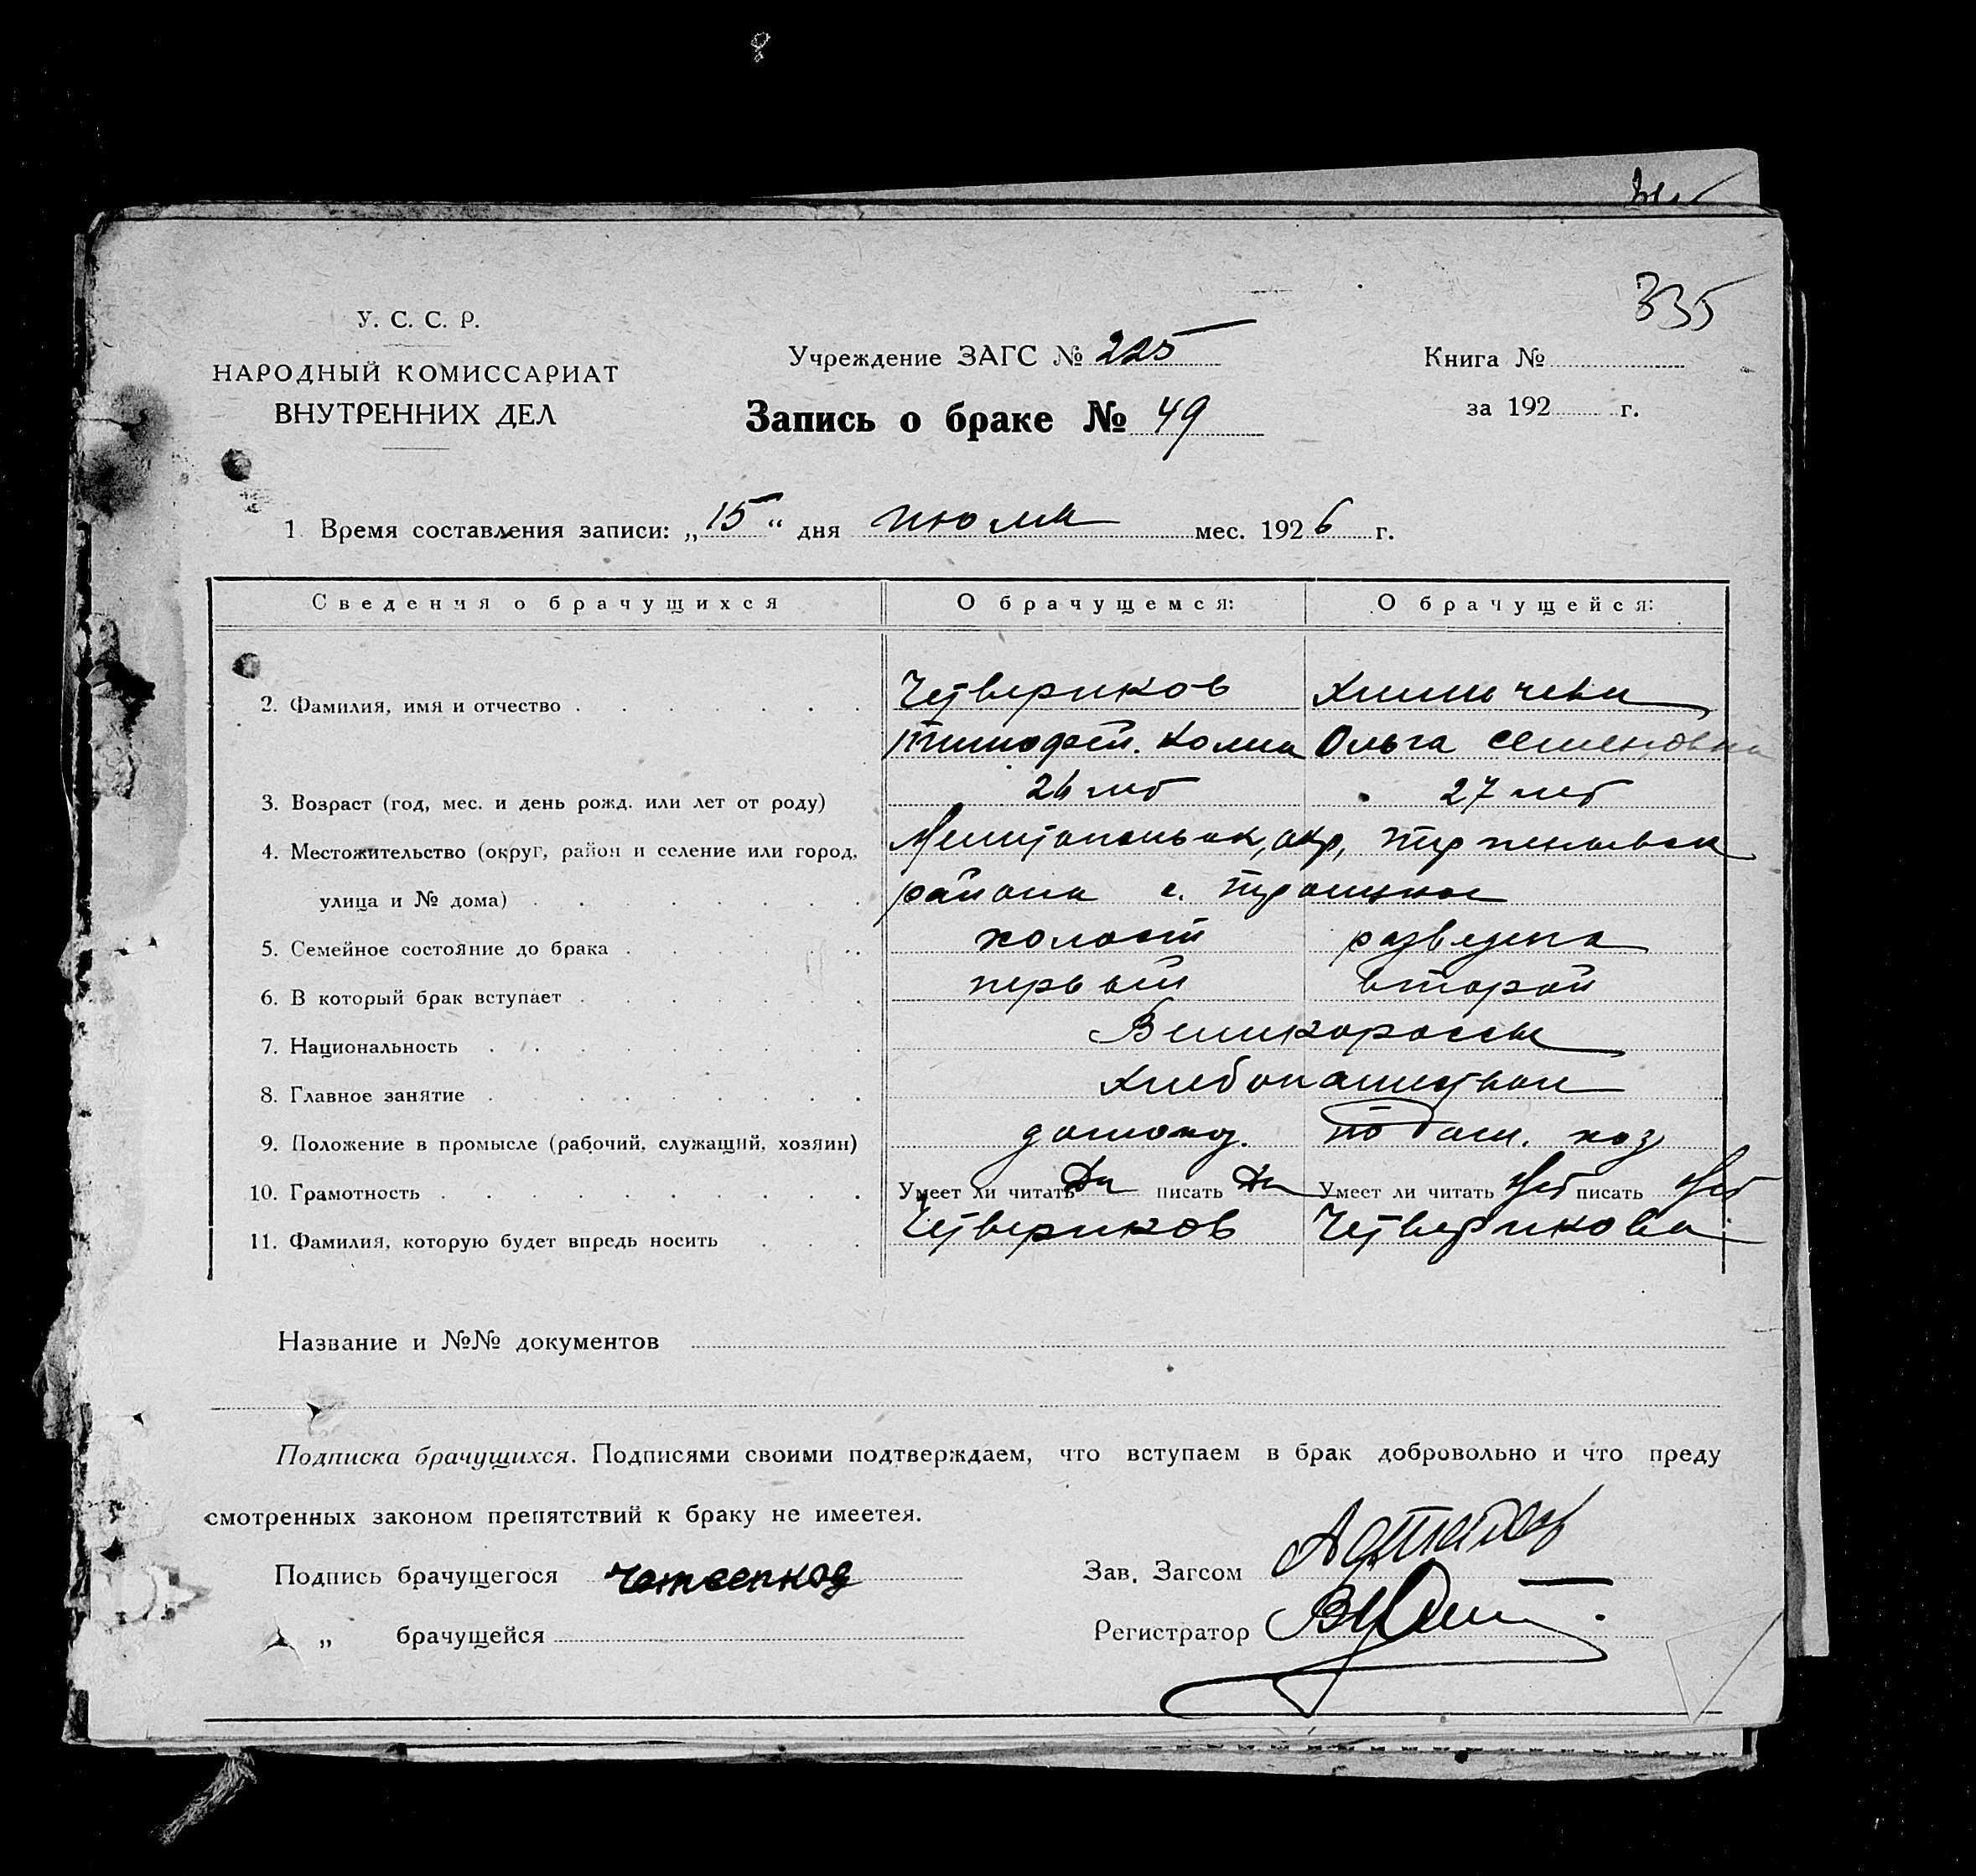 335
У. С. С. Р.
НАРОДНЫЙ КОМИССАРИАТ
ВНУТРЕННИХ ДЕЛ
Учреждение ЗАГС № 225
Запись о браке № 49
Книга №
за 192 г.
1. Время составления записи: „15“ дня июля мес. 1926 г.
Сведения о брачущихся О брачущемся: О брачущейся:
2. Фамилия, имя и отчество Четвериков
Тимофей. Ольга Семеновна
3. Возраст (год, мес. и день рожд. или лет от роду) 26 лет 27 лет
4. Местожительство (округ, район и селение или город, окр,
улица и № дома) района с. Троицкое
5. Семейное состояние до брака холост разведена
6. В который брак вступает первый второй
7. Национальность Великороссы
8. Главное занятие Хлебопашеством
9. Положение в промысле (рабочий, служащий, хозяин) домохоз. хоз
10. Грамотность Умеет ли читать Да писать Да Умеет ли читать Нет писать Нет
11. Фамилия, которую будет впредь носить Четвериков Четверикова
Название и №№ документов
Подписка брачущихся. Подписями своими подтверждаем, что вступаем в брак добровольно и что преду
смотренных законом препятствий к браку не имеетея.
Подпись брачущегося
Зав. Загсом
„ брачущейся
Регистратор